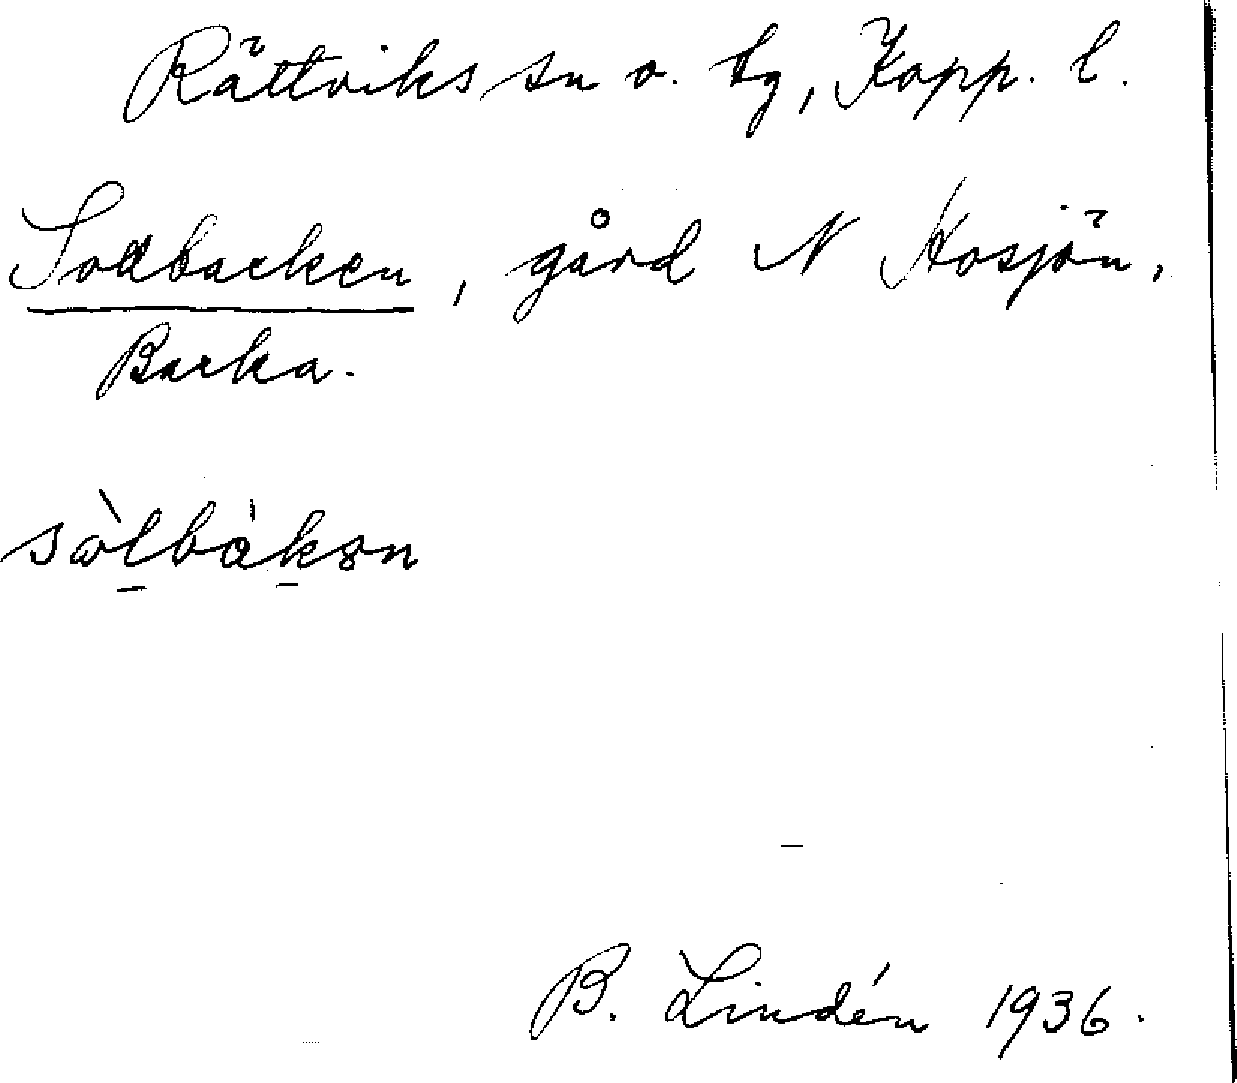 Rättviks sn o. tg, Kopp. l.
Solbacken, gård N Hosjön,
Backa.
sòlbákən
B. Lindén 1936.